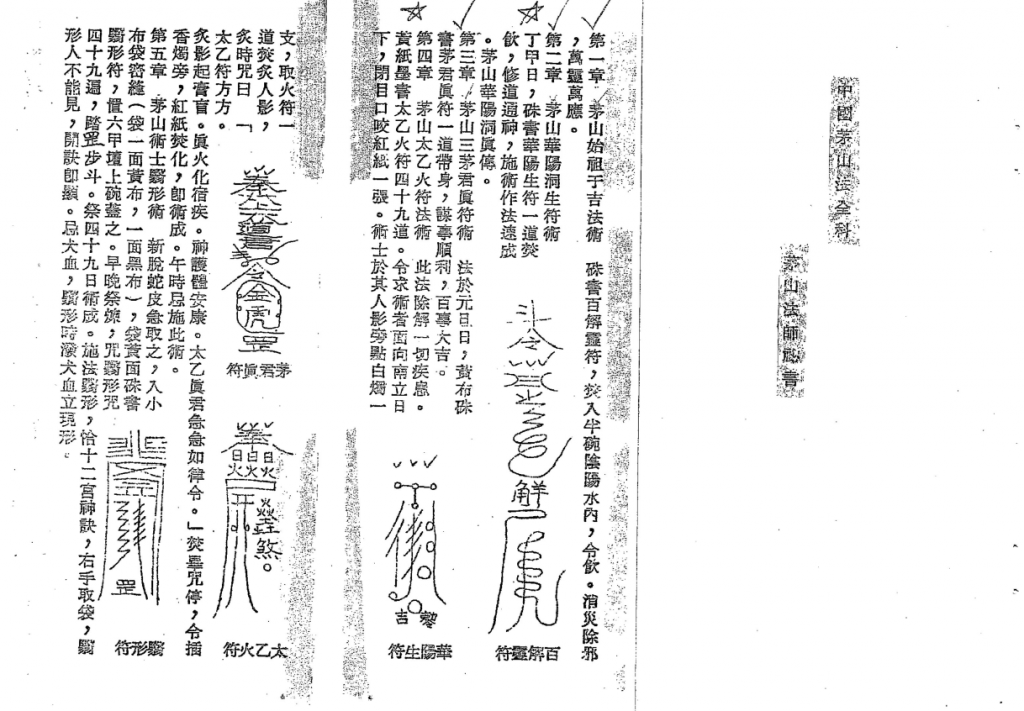 中國茅山法全科
茅山法師
第一章 茅山始祖于吉法術 硃書百解靈符,焚入半碗陰陽水內,令飲。消災除邪
,萬靈萬應。
第二章 茅山華陽洞生符術
丁甲日,硃書華陽生符一道焚
飲,修道通神,施術作法速成
。茅山華陽洞眞傳。
百解靈符
斗令
解
華陽生符
吉
第三章 茅山三茅君眞符術 法於元旦日,黃布硃
書茅君眞符一道帶身,謀事順利,百事大吉。
第四章 茅山太乙火符法術 此法除解一切疾患。
黃紙墨書太乙火符四十九道。令求術者面向南立日
下,閉目口咬紅紙一張。術士於其人影旁點白燭一
支,取火符一
道焚炙人影,
炙時咒曰「
太乙符方方。
炙影起膏肓。眞火化宿疾。神護體安康。太乙眞君急急如律令。」焚畢咒停,令插
香燭旁,紅紙焚化,卽術成。午時忌施此術。
茅君眞符
令金虎罡
太乙火符
日日
火火火
煞
第五章 茅山術士翳形術 新脫蛇皮急取之,入小
布袋密縫(袋一面黃布,一面黑布),袋黃面硃書
翳形符,置六甲壇上碗蓋之。早晚祭煉,咒翳形咒
四十九遍,踏罡步斗。祭四十九日術成。施法翳形,恰十二宮神訣,右手取袋,翳
形人不能見,開訣卽顯。忌犬血,翳形時潑犬血立現形。
翳形符
罡